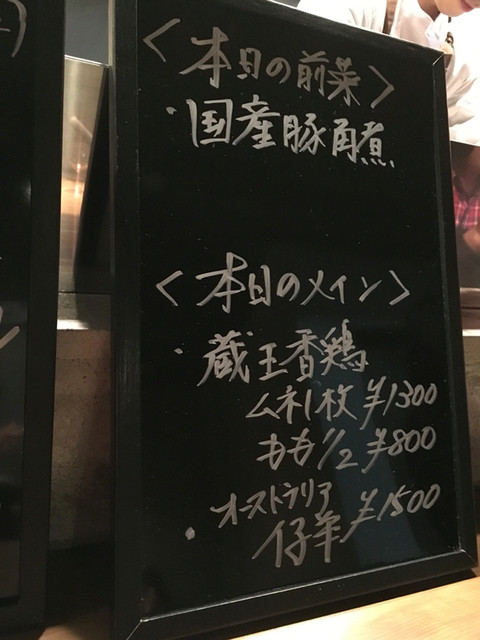 <本日の前菜>
・国産豚角煮
<本日のメイン>
・蔵王香鶏
ムネ1枚 ¥1300
もも1/2 ¥800
・オーストラリア
仔羊 ¥1500